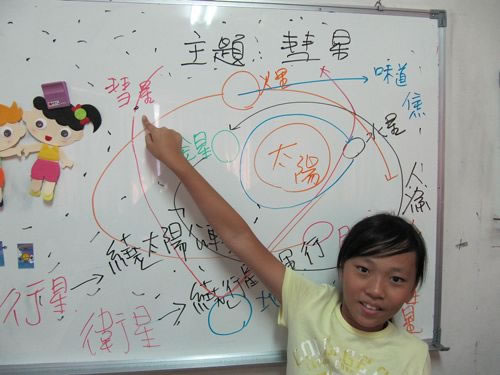 主題:彗星
彗星
火星
味道
焦
水星
金星
太陽
人
繞太陽公轉
行星
繞行星
運行
衛星
地